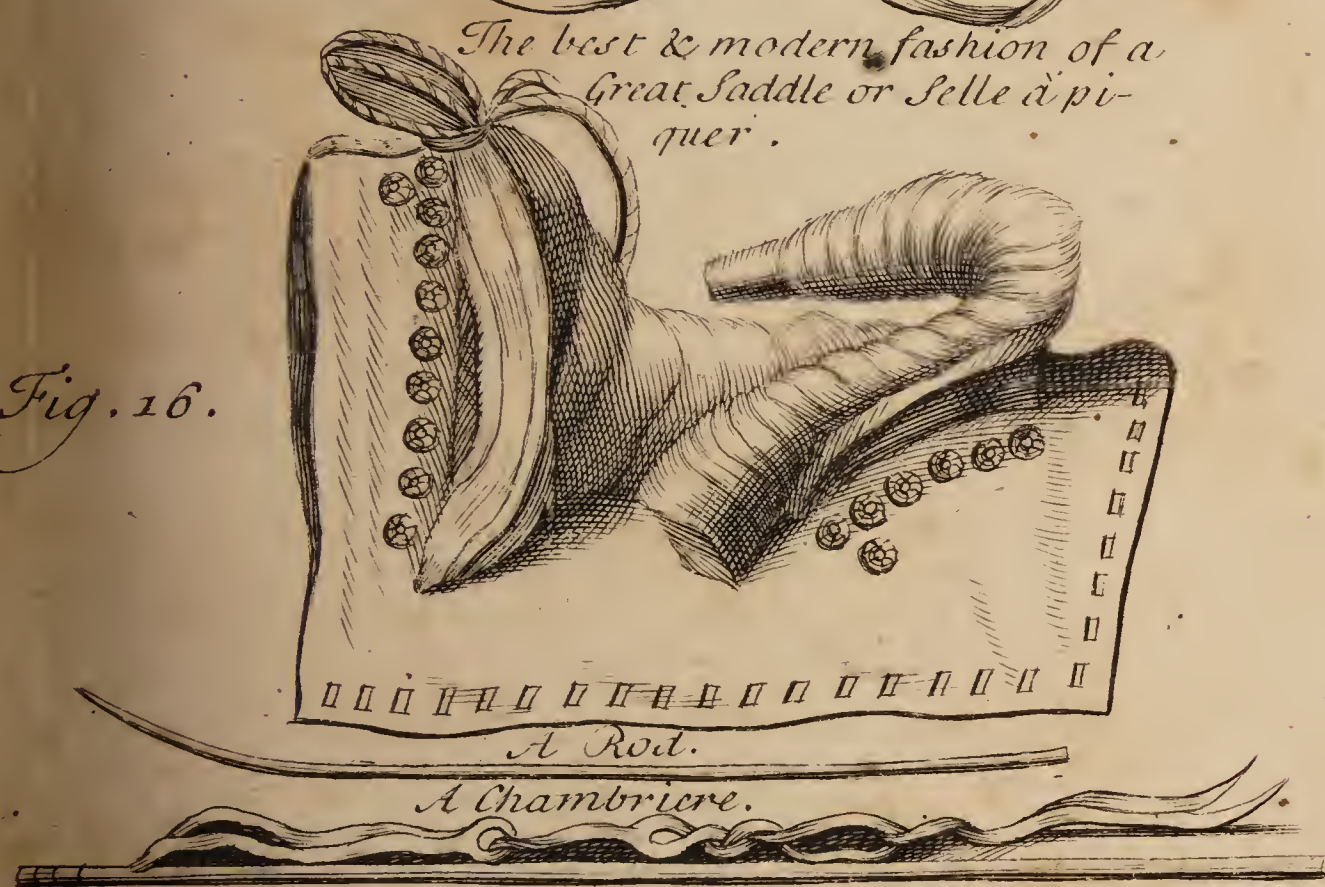 The best & modern fashion of a
Great Saddle or Selle à pi-
quer.
Fig. 16.
A Rod.
A Chambriere.